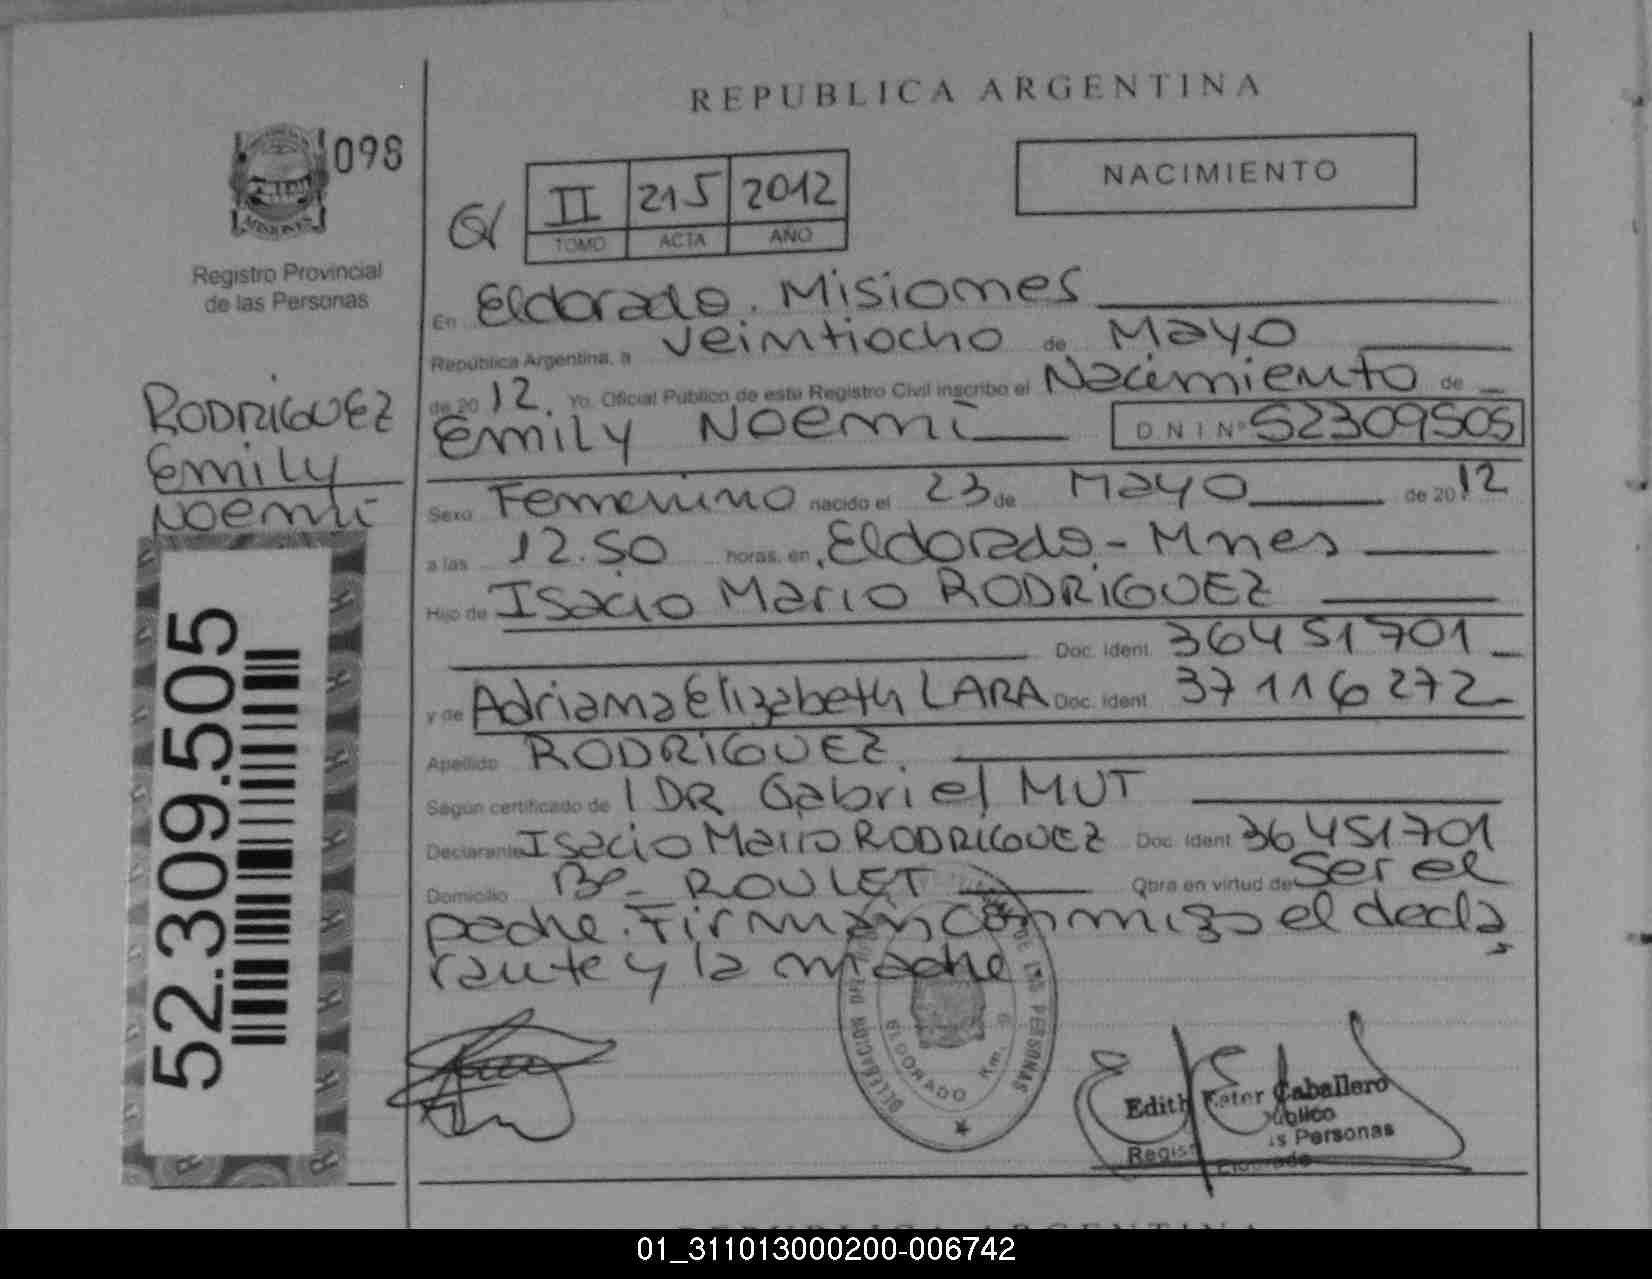 REPUBLICA ARGENTINA
098
MISIONES
Registro Provincial
de las Personas
NACIMIENTO
II 215 2012
TOMO ACTA AÑO
En Eldorado. Misiones
República Argentina, a veintiocho de Mayo
de 2012. Yo, Oficial Público de este Registro Civil inscribo el Nacimiento de
Emily Noemi D.N.I.Nº 52309505
RODRIGUEZ
Emily
Noemi
Sexo Femenino nacido el 23 de Mayo de 2012
a las 12.50 horas, en Eldorado - Mnes
Hijo de Isacio Mario RODRIGUEZ
Doc. Ident. 36451701
y de Adriana Elizabeth LARA Doc. Ident. 37116272
Apellido RODRIGUEZ
Según certificado de DR Gabriel MUT
Declarante Isacio Mario RODRIGUEZ Doc. Ident 36451701
Domicilio Bº ROULET Obra en virtud de Ser el
padre. Firman conmigo el decla
rante y la madre
52.309.505
DELEGACION DE LAS PERSONAS
ELDORADO Km. 9
Edith Ester Caballero
Público
Personas
Eldorado
REPUBLICA ARGENTINA
01_311013000200-006742